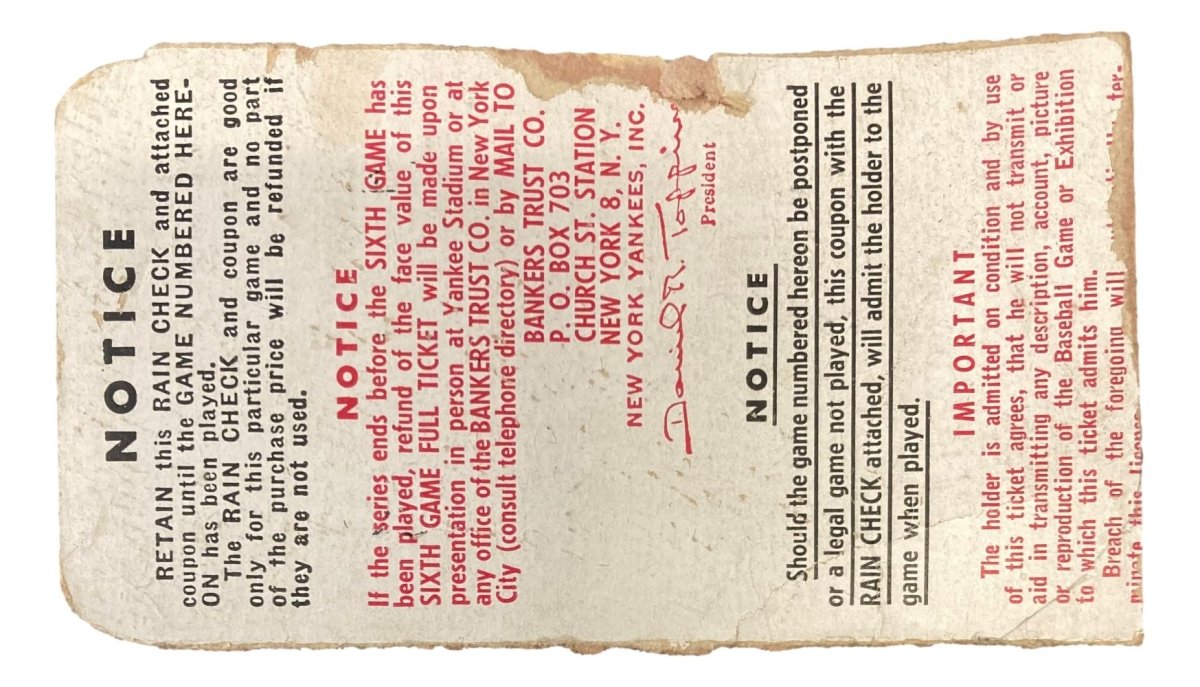 NOTICE
RETAIN this RAIN CHECK and attached
coupon until the GAME NUMBERED HERE-
ON has been played.
The RAIN CHECK and coupon are good
only for this particular game and no part
of the purchase price will be refunded if
they are not used.
NOTICE
If the series ends before the SIXTH GAME has
been played, refund of the face value of this
SIXTH GAME FULL TICKET will be made upon
presentation in person at Yankee Stadium or at
any office of the BANKERS TRUST CO. in New York
City (consult telephone directory) or by MAIL TO
BANKERS TRUST CO.
P. O. BOX 703
CHURCH ST. STATION
NEW YORK 8, N. Y.
NEW YORK YANKEES, INC.
Daniel R. Topping
President
NOTICE
Should the game numbered hereon be postponed
or a legal game not played, this coupon with the
RAIN CHECK attached, will admit the holder to the
game when played.
IMPORTANT
The holder is admitted on condition and by use
of this ticket agrees, that he will not transmit or
aid in transmitting any description, account, picture
or reproduction of the Baseball Game or Exhibition
to which this ticket admits him.
Breach of the foregoing will ter-
minate this license